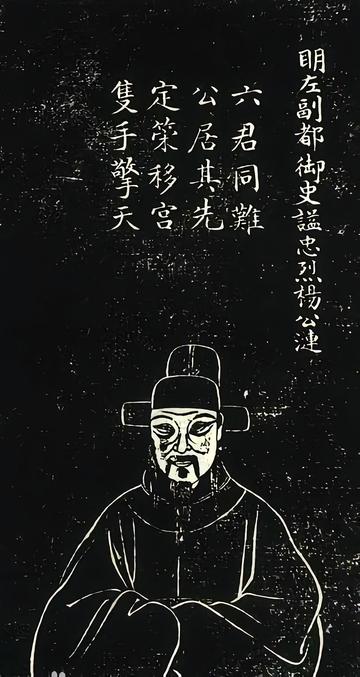 明左副都御史諡忠烈楊公漣
六君同難
公居其先
定策移宮
隻手擎天